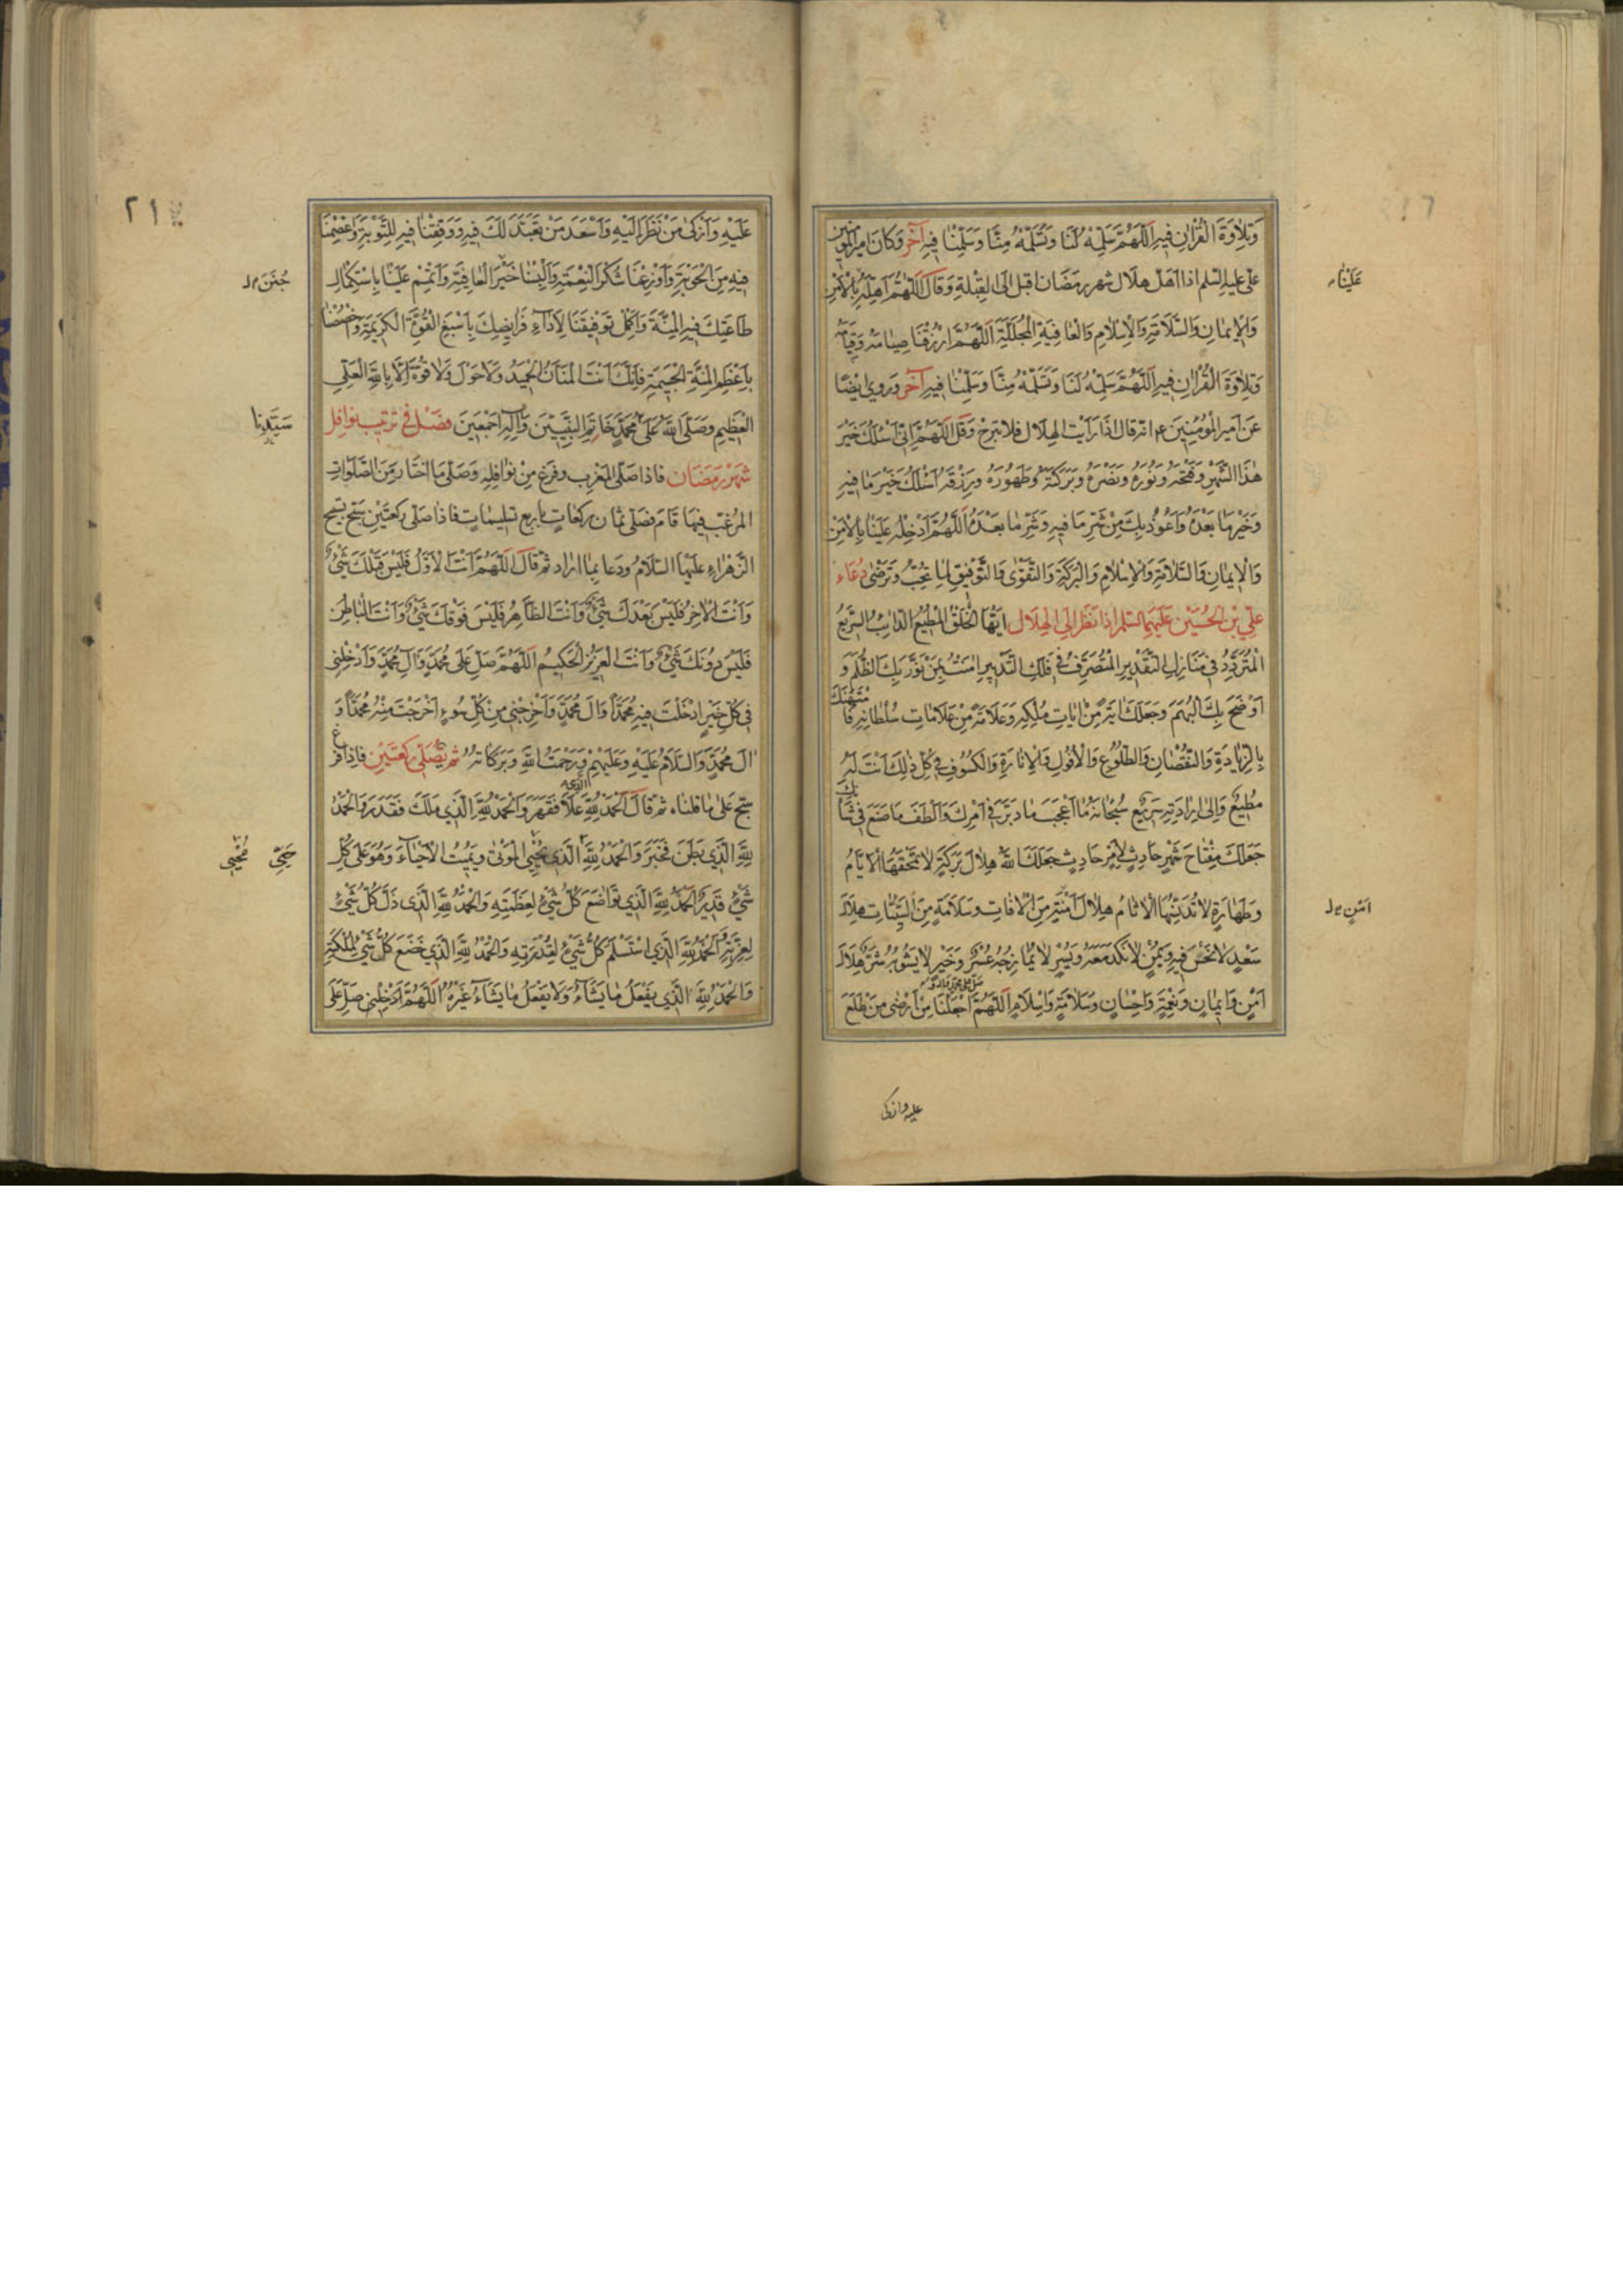 وَتِلاوَةَ الْقُرْاٰنِ فيهِ اَللّٰهُمَّ سَلِّمْهُ لَنَا وَتَسَلَّمْهُ مِنَّا وَسَلِّمْنٰا فيهِ آخَر وَكانَ اميرالمؤمنين
علی علیه السلم اذا اهلّ هلال شهر رمضان اقبل الی القبلة وَقالَ اَللّٰهُمَّ اَهِلَّهُ بِالْاَمْنِ
عَلَيْنٰا
وَالْايمٰانِ وَالسَّلاٰمَةِ وَالْاِسْلاٰمِ وَالْعٰافِيَةِ الْمُجَلَّلَةِ اَللّٰهُمَّ ارْزُقْنٰا صِيٰامَهُ وَقِيٰامَهُ
وَتِلاوَةَ الْقُرْاٰنِ فيهِ اَللّٰهُمَّ سَلِّمْهُ لَنَا وَتَسَلَّمْهُ مِنَّا وَسَلِّمْنٰا فيهِ آخَر وروي ايضًا
عَن اَميرِ الْمُؤْمِنينَ ع انه قال اذا رَاَيْتَ الهِلٰال فلا تبرح وَقُل اَللّٰهُمَّ اِنّي اَسْئَلُكَ خَيْرَ
هٰذَا الشَّهْرِ وَفَتْحَهُ وَنُورَهُ وَنَصْرَهُ وَبَرَكَتَهُ وَطَهُورَهُ وَرِزْقَهُ اَسْئَلُكَ خَيْرَ مَا فيهِ
وَخَيْرَ مٰا بَعْدَهُ وَاَعُوذُ بِكَ مِنْ شَرِّ مَا فيهِ وَشَرِّ مٰا بَعْدَهُ اَللّٰهُمَّ اَدْخِلْهُ عَلَيْنٰا بِالْاَمْنِ
وَالْايمٰانِ وَالسَّلاٰمَةِ وَالْاِسْلاٰمِ وَالْبَرَكَةِ وَالتَّقْوٰى وَالتَّوْفيقِ لِمٰا تُحِبُّ وَتَرْضٰى دُعٰاء
عَلِيِّ بْنِ الْحُسَيْنِ عَلَيْهِمَا السّلم اذا نَظَرَ اِلَى الْهِلٰالِ اَيُّهَا الْخَلْقُ الْمُطيعُ الدّٰائِبُ السَّريعُ
الْمُتَرَدِّدُ في مَنَازِلِ التَّقْديرِ الْمُتَصَرِّفُ في فَلَكِ التَّدْبيرِ اٰمَنْتُ بِمَنْ نَوَّرَ بِكَ الظُّلَمَ وَ
اَوْضَحَ بِكَ الْبُهَمَ وَجَعَلَكَ اٰيَةً مِنْ اٰيَاتِ مُلْكِهِ وَعَلاٰمَةً مِنْ عَلاٰمٰاتِ سُلْطٰانِهِ فَامْتَهَنَكَ
بِالزِّيٰادَةِ وَالنُّقْصٰانِ وَالطُّلُوعِ وَالْاُفُولِ وَالْاِنٰارَةِ وَالْكُسُوفِ في كُلِّ ذٰلِكَ اَنْتَ لَهُ
مُطيعٌ وَاِلٰى اِرٰادَتِهِ سَريعٌ سُبْحٰانَهُ مٰا اَعْجَبَ مٰا دَبَّرَ في اَمْرِكَ وَاَلْطَفَ مٰا صَنَعَ في شَأْنِكَ
جَعَلَكَ مِفْتٰاحَ شَهْرٍ حَادِثٍ لِاَمْرٍ حَادِثٍ جَعَلَكَ اللّٰهُ هِلٰالَ بَرَكَةٍ لاٰ تَمْحَقُهَا الْاَيّٰامُ
وَطَهٰارَةٍ لاٰ تُدَنِّسُهَا الْاٰثٰامُ هِلٰالَ اَمْنٍ مِنَ الْاٰفٰاتِ وَسَلاٰمَةٍ مِنَ السَّيِّئٰاتِ هِلاٰلَ
سَعْدٍ لاٰ نَحْسَ فيهِ وَيُمْنٍ لاٰ نَكَدَ مَعَهُ وَيُسْرٍ لاٰ يُمٰازِجُهُ عُسْرٌ وَخَيْرٍ لاٰ يَشُوبُهُ شَرٌّ هِلاٰلَ
اَمْنٍ وَايمٰانٍ وَنِعْمَةٍ وَاِحْسٰانٍ وَسَلاٰمَةٍ وَاِسْلاٰمٍ اَللّٰهُمَّ اجْعَلْنٰا مِنْ اَرْضٰى مَنْ طَلَعَ
عليه وازكى
٢١
عَلَيْهِ وَاَزْكىٰ مَنْ نَظَرَ اِلَيْهِ وَاَسْعَدَ مَنْ تَعَبَّدَ لَكَ فيهِ وَوَفِّقْنٰا فيهِ لِلتَّوْبَةِ وَاعْصِمْنٰا
فيهِ مِنَ الْحَوْبَةِ وَاَوْزِعْنٰا شُكْرَ النِّعْمَةِ وَاَلْبِسْنٰا خَيْرَ الْعٰافِيَةِ وَاَتْمِمْ عَلَيْنٰا بِاسْتِكْمٰالِ
جُنَنَ
طٰاعَتِكَ فيهِ الْمِنَّةَ وَاَكْمِلْ تَوْفيقَنٰا لِاَدٰاءِ فَرٰايِضِكَ بِاَسْبَغِ الْقُوَّةِ الْكَريمَةِ وَخُصَّنٰا
بِاَعْظَمِ الْمِنَّةِ الْجَسيمَةِ فَاِنَّكَ اَنْتَ الْمَنّٰانُ الْحَميدُ وَلاٰ حَوْلَ وَلاٰ قُوَّةَ اِلاّٰ بِاللّٰهِ الْعَلِيِّ
الْعَظيمِ وَصَلَّى اللّٰهُ عَلىٰ مُحَمَّدٍ خٰاتَمِ النَّبِيّينَ وَاٰلِهِ اَجْمَعينَ فَصْل في ترتيب نوافل
سَيِّدِنا
شَهْر رَمَضَان فاذا صلّى المغرب وفرغ مِن نوافله وَصلّى ما اختار مِنَ الصَّلَوات
المرغب فيها قام فصلى ثمان ركعاتٍ باربع تسليمات فاذا صلّى ركعتين سبّح تسبيح
الزهراءِ عليها السّلام ودعا بما اراد ثم قال اَللّٰهُمَّ اَنْتَ الْاَوَّلُ فَلَيْسَ قَبْلَكَ شَيْءٌ
وَاَنْتَ الْاٰخِرُ فَلَيْسَ بَعْدَكَ شَيْءٌ وَاَنْتَ الظّٰاهِرُ فَلَيْسَ فَوْقَكَ شَيْءٌ وَاَنْتَ الْبٰاطِنُ
فَلَيْسَ دُونَكَ شَيْءٌ وَاَنْتَ الْعَزيزُ الْحَكيمُ اَللّٰهُمَّ صَلِّ عَلىٰ مُحَمَّدٍ وَاٰلِ مُحَمَّدٍ وَاَدْخِلْني
في كُلِّ خَيْرٍ اَدْخَلْتَ فيهِ مُحَمَّدًا وَاٰلَ مُحَمَّدٍ وَاَخْرِجْني مِنْ كُلِّ سُوءٍ اَخْرَجْتَ مِنْهُ مُحَمَّدًا وَ
اٰلَ مُحَمَّدٍ وَالسَّلاٰمُ عَلَيْهِ وَعَلَيْهِمْ وَرَحْمَتُ اللّٰهِ وَبَرَكٰاتُهُ ثم يصلّى ركعتين فاذا فرغ
سبّح على ما قلناه ثم قال اَلْحَمْدُ لِلّٰهِ الَّذي عَلاٰ فَقَهَرَ وَالْحَمْدُ لِلّٰهِ الَّذي مَلَكَ فَقَدَرَ وَالْحَمْدُ
لِلّٰهِ الَّذي بَطَنَ فَخَبَرَ وَالْحَمْدُ لِلّٰهِ الَّذي يُحْيِي الْمَوْتىٰ وَيُميتُ الْاَحْيٰاءَ وَهُوَ عَلىٰ كُلِّ
شَيْءٍ قَديرٌ اَلْحَمْدُ لِلّٰهِ الَّذي تَوٰاضَعَ كُلُّ شَيْءٍ لِعَظَمَتِهِ وَالْحَمْدُ لِلّٰهِ الَّذي ذَلَّ كُلُّ شَيْءٍ
لِعِزَّتِهِ وَالْحَمْدُ لِلّٰهِ الَّذي اسْتَسْلَمَ كُلُّ شَيْءٍ لِقُدْرَتِهِ وَالْحَمْدُ لِلّٰهِ الَّذي خَضَعَ كُلُّ شَيْءٍ لِمُلْكَتِهِ
وَالْحَمْدُ لِلّٰهِ الَّذي يَفْعَلُ مٰا يَشٰاءُ وَلاٰ يَفْعَلُ مٰا يَشٰاءُ غَيْرُهُ اَللّٰهُمَّ اَدْخِلْني صَلِّ عَلىٰ